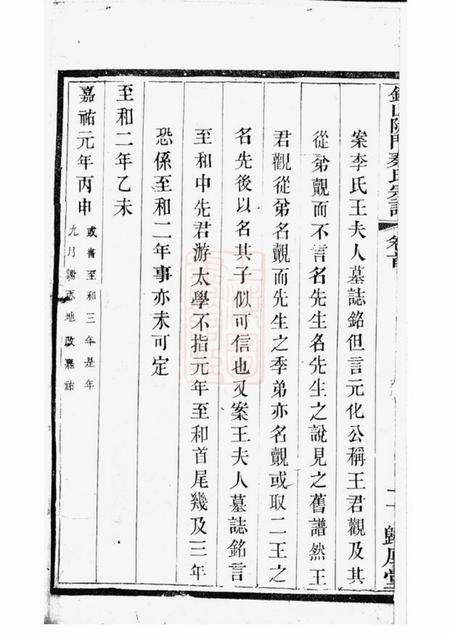 錫山陡門秦氏宗譜 卷首
案李氏王夫人墓誌銘但言元化公稱王君觀及其
從弟覿而不言名先生名先生之說見之舊譜然王
君觀從弟名覿而先生之季弟亦名覿或取二王之
名先後以名其子似可信也又案王夫人墓誌銘言
至和中先君游太學不指元年至和首尾幾及三年
恐係至和二年事亦未可定
至和二年乙未
嘉祐元年丙申 或書至和三年是年
九月 地改嘉祐
歸厚堂